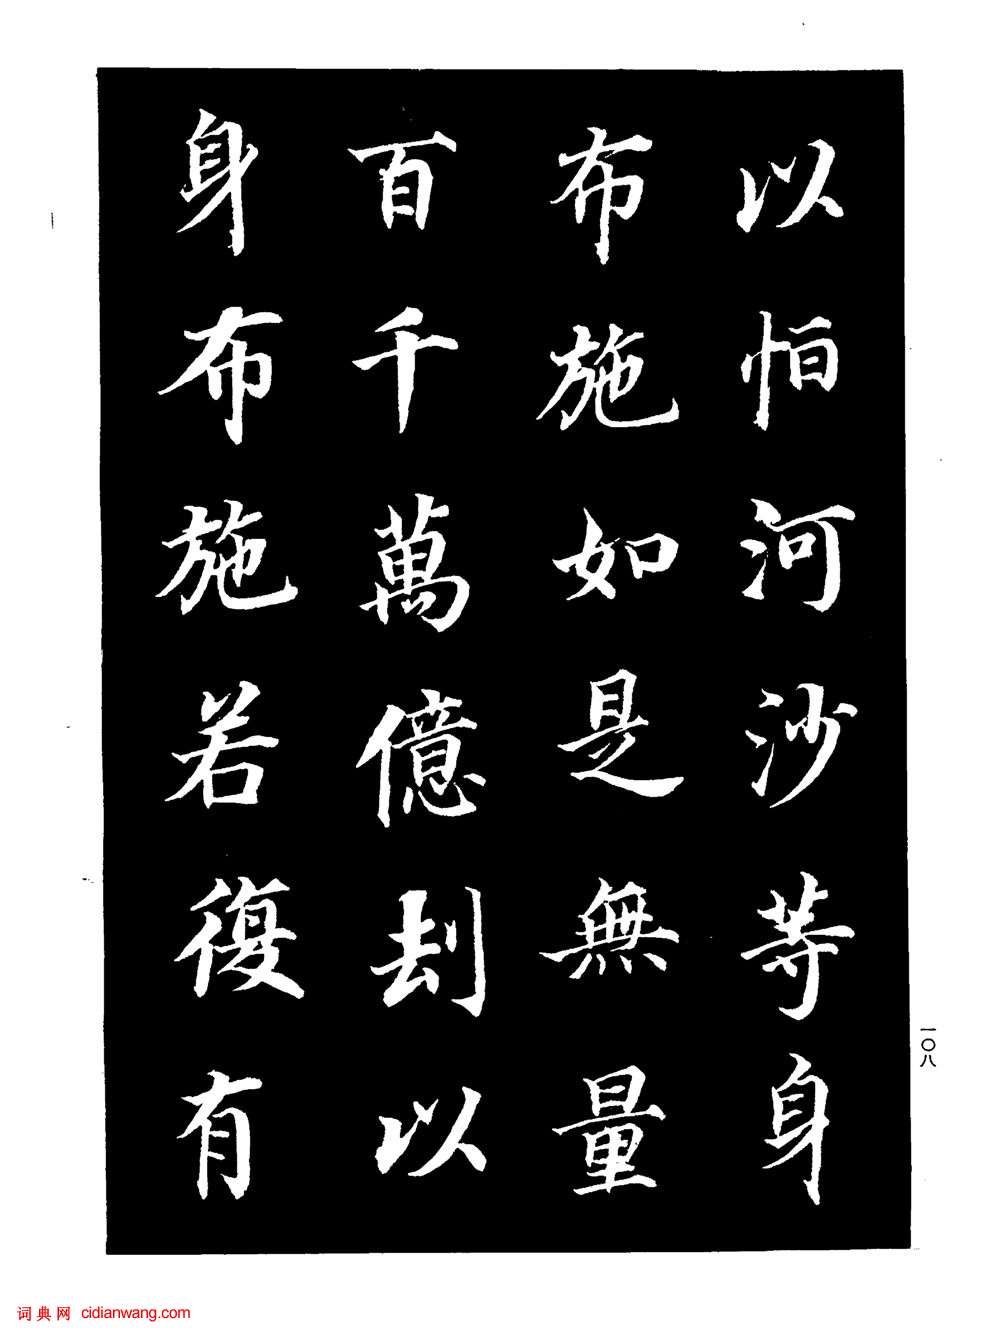 以恒河沙等身
布施如是無量
百千萬億劫以
身布施若復有
一〇八
词典网 cidianwang.com